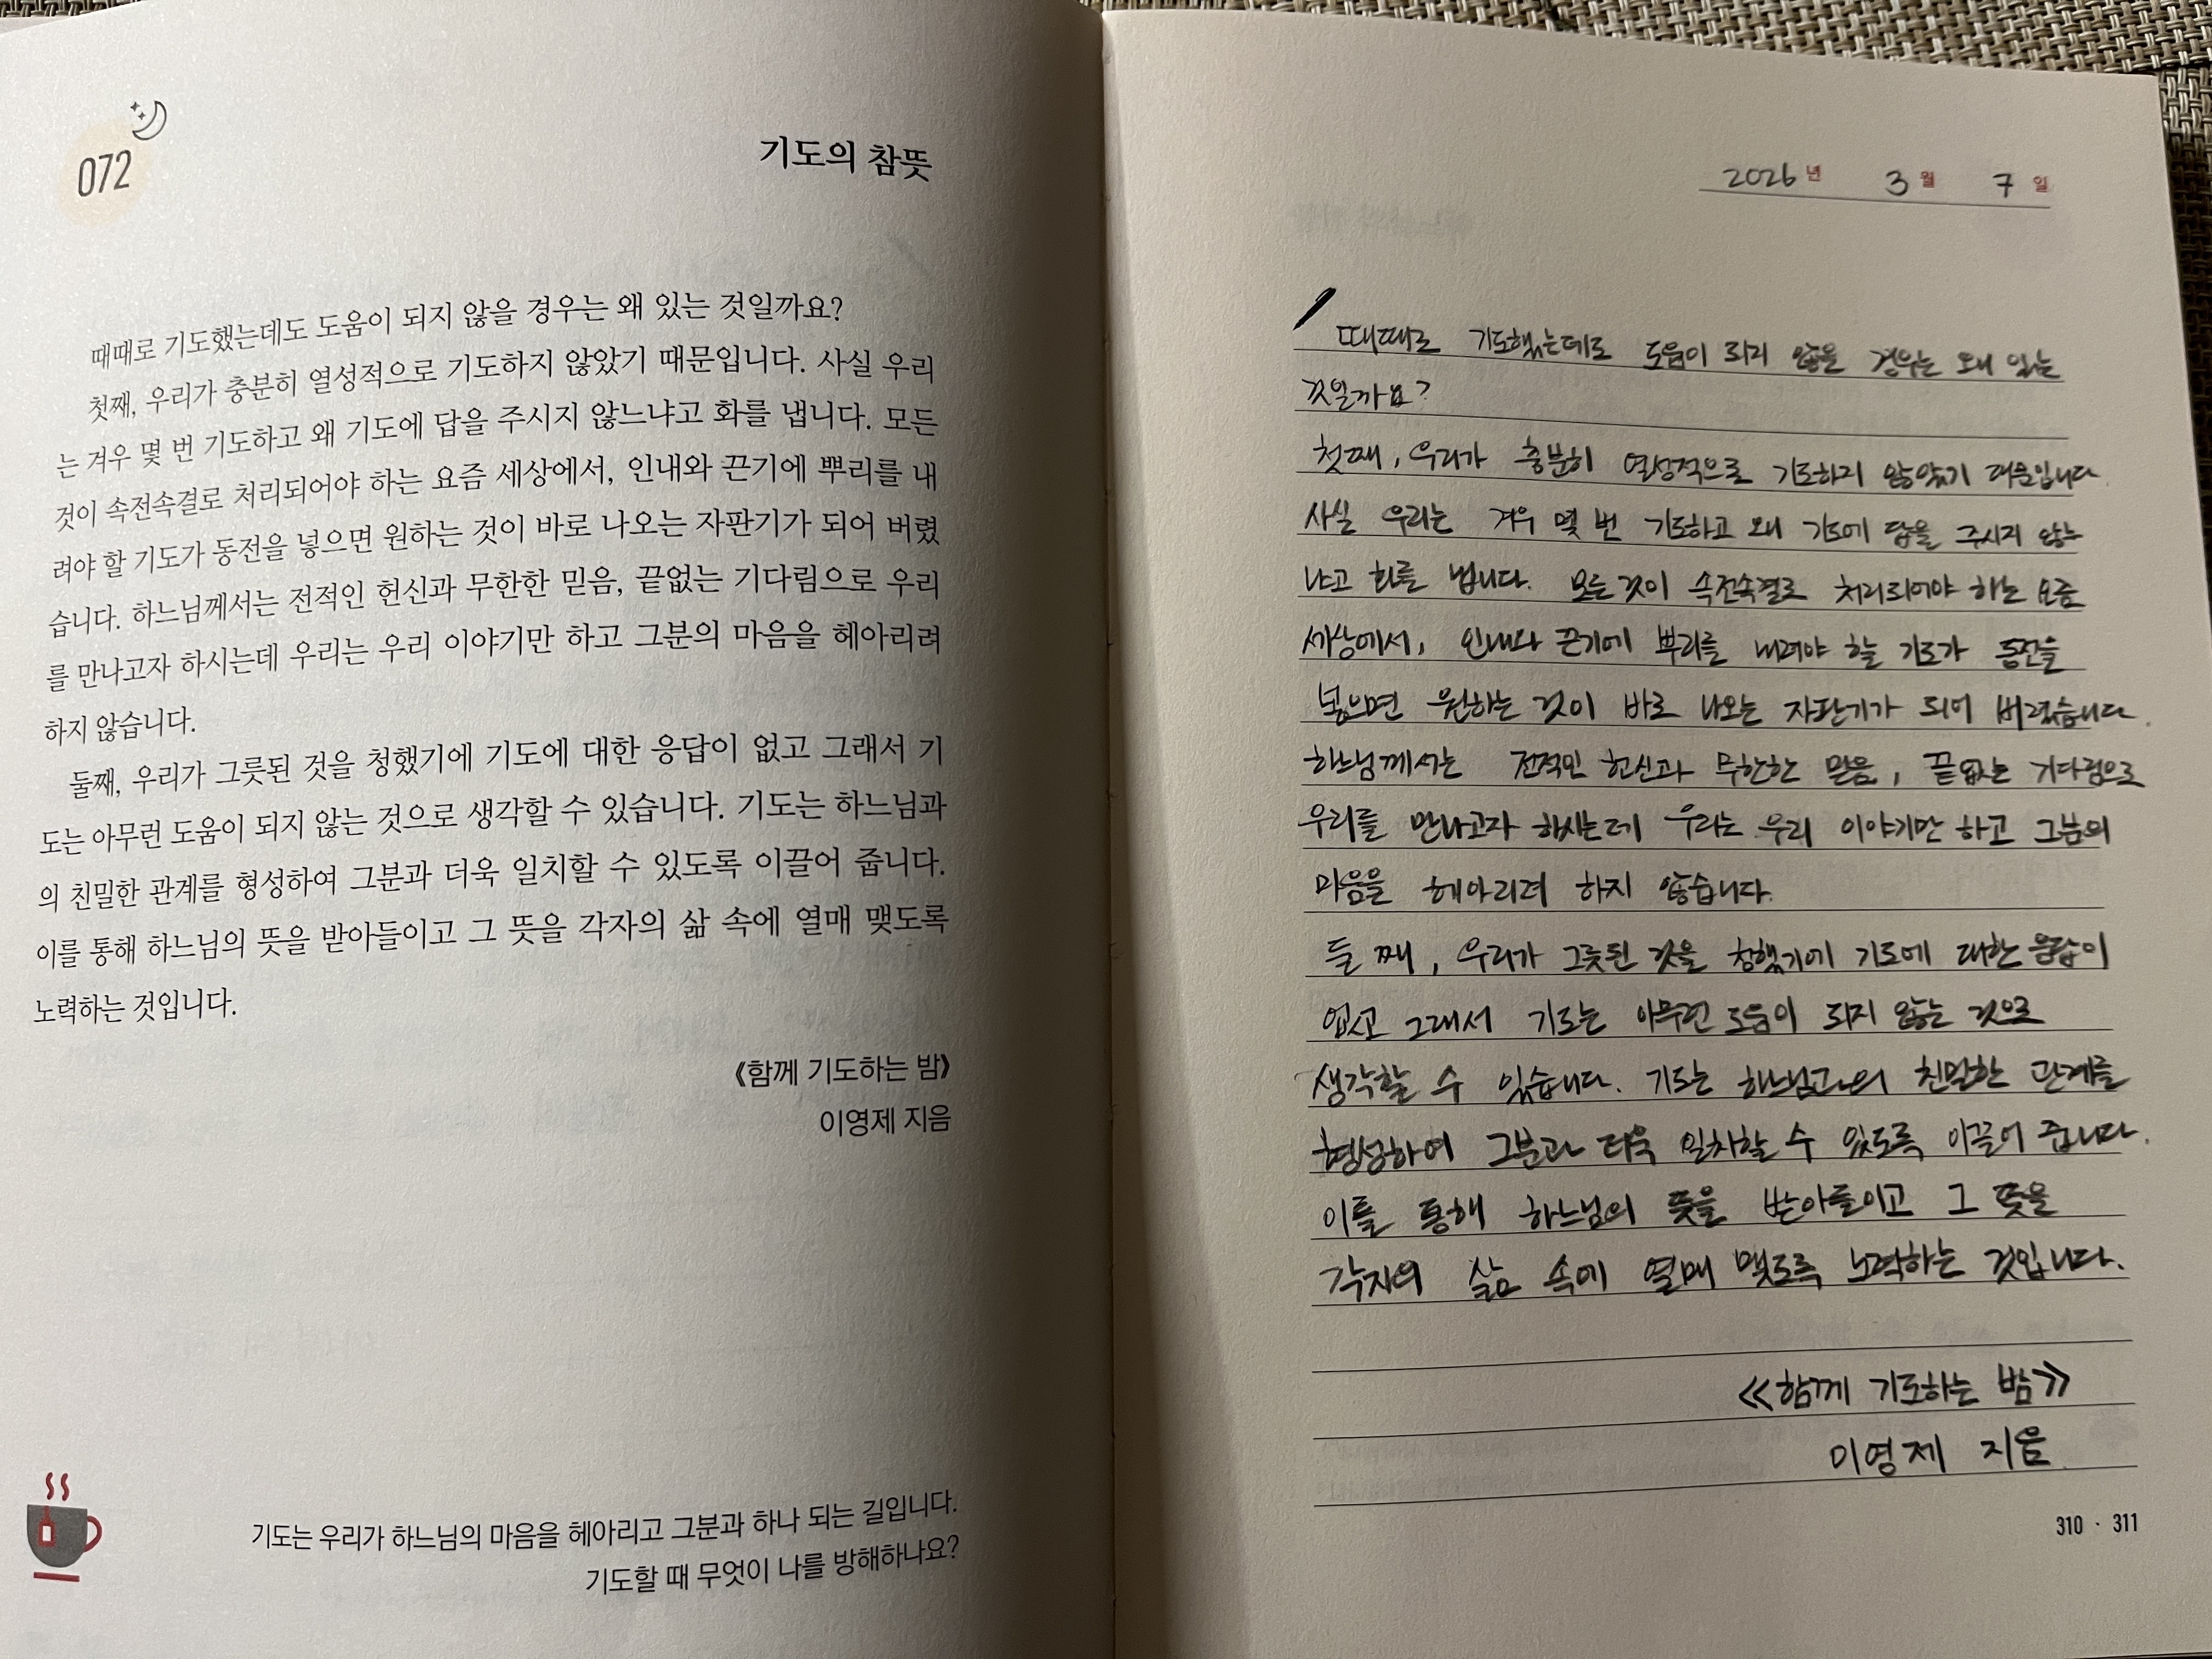 072
기도의 참뜻
때때로 기도했는데도 도움이 되지 않을 경우는 왜 있는 것일까요?
첫째, 우리가 충분히 열성적으로 기도하지 않았기 때문입니다. 사실 우리
는 겨우 몇 번 기도하고 왜 기도에 답을 주시지 않느냐고 화를 냅니다. 모든
것이 속전속결로 처리되어야 하는 요즘 세상에서, 인내와 끈기에 뿌리를 내
려야 할 기도가 동전을 넣으면 원하는 것이 바로 나오는 자판기가 되어 버렸
습니다. 하느님께서는 전적인 헌신과 무한한 믿음, 끝없는 기다림으로 우리
를 만나고자 하시는데 우리는 우리 이야기만 하고 그분의 마음을 헤아리려
하지 않습니다.
둘째, 우리가 그릇된 것을 청했기에 기도에 대한 응답이 없고 그래서 기
도는 아무런 도움이 되지 않는 것으로 생각할 수 있습니다. 기도는 하느님과
의 친밀한 관계를 형성하여 그분과 더욱 일치할 수 있도록 이끌어 줍니다.
이를 통해 하느님의 뜻을 받아들이고 그 뜻을 각자의 삶 속에 열매 맺도록
노력하는 것입니다.
《함께 기도하는 밤》
이영제 지음
기도는 우리가 하느님의 마음을 헤아리고 그분과 하나 되는 길입니다.
기도할 때 무엇이 나를 방해하나요?
2026년 3월 7일
때때로 기도했는데도 도움이 되지 않을 경우는 왜 있는
것일까요?
첫째, 우리가 충분히 열성적으로 기도하지 않았기 때문입니다.
사실 우리는 겨우 몇 번 기도하고 왜 기도에 답을 주시지 않느
냐고 화를 냅니다. 모든 것이 속전속결로 처리되어야 하는 요즘
세상에서, 인내와 끈기에 뿌리를 내려야 할 기도가 동전을
넣으면 원하는 것이 바로 나오는 자판기가 되어 버렸습니다.
하느님께서는 전적인 헌신과 무한한 믿음, 끝없는 기다림으로
우리를 만나고자 하시는데 우리는 우리 이야기만 하고 그분의
마음을 헤아리려 하지 않습니다.
둘 째, 우리가 그릇된 것을 청했기에 기도에 대한 응답이
없고 그래서 기도는 아무런 도움이 되지 않는 것으로
생각할 수 있습니다. 기도는 하느님과의 친밀한 관계를
형성하여 그분과 더욱 일치할 수 있도록 이끌어 줍니다.
이를 통해 하느님의 뜻을 받아들이고 그 뜻을
각자의 삶 속에 열매 맺도록 노력하는 것입니다.
≪함께 기도하는 밤≫
이영제 지음
310 · 311